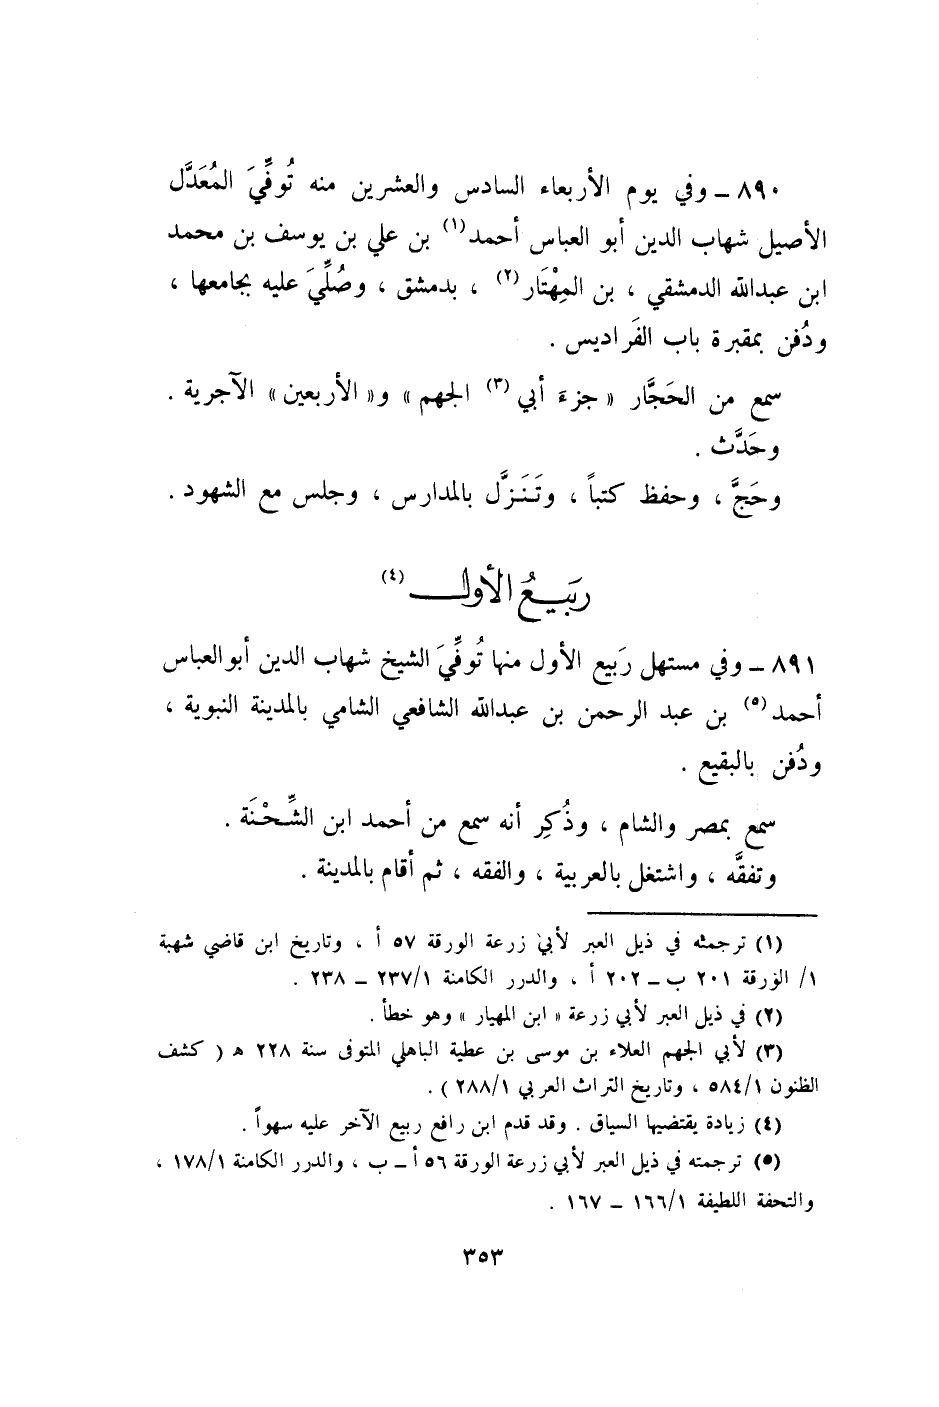 ٨٩٠ ـ وفي يوم الأربعاء السادس والعشرين منه تُوفِّيَ المُعَدَّل
الأصيل شهاب الدين أبو العباس أحمد(١) بن علي بن يوسف بن محمد
ابن عبدالله الدمشقي ، بن المِهْتَار(٢) ، بدمشق ، وصُلِّيَ عليه بجامعها ،
ودُفن بمقبرة باب الفَراديس .
سمع من الحَجَّار « جزءَ أبي (٣) الجهم » و« الأربعين » الآجرية .
وحَدَّث .
وحَجَّ ، وحفظ كتباً ، وتَنَزَّل بالمدارس ، وجلس مع الشهود .
ربَيعُ الأول (٤)
٨٩١ ـ وفي مستهل رَبيع الأول منها تُوفِّيَ الشيخ شهاب الدين أبو العباس
أحمد(٥) بن عبد الرحمن بن عبدالله الشافعي الشامي بالمدينة النبوية ،
ودُفن بالبقيع .
سمع بمصر والشام ، وذُكِر أنه سمع من أحمد ابن الشِّحْنَة .
وتفقَّه ، واشتغل بالعربية ، والفقه ، ثم أقام بالمدينة .
(١) ترجمته في ذيل العبر لأبي زرعة الورقة ٥٧ أ ، وتاريخ ابن قاضي شهبة
١/ الورقة ٢٠١ ب ـ ٢٠٢ أ ، والدرر الكامنة ٢٣٧/١ ـ ٢٣٨ .
(٢) في ذيل العبر لأبي زرعة « ابن المهيار » وهو خطأ .
(٣) لأبي الجهم العلاء بن موسى بن عطية الباهلي المتوفى سنة ٢٢٨ ه ( كشف
الظنون ٥٨٤/١ ، وتاريخ التراث العربي ٢٨٨/١ ) .
(٤) زيادة يقتضيها السياق . وقد قدم ابن رافع ربيع الآخر عليه سهواً .
(٥) ترجمته في ذيل العبر لأبي زرعة الورقة ٥٦ أ ـ ب ، والدرر الكامنة ١٧٨/١ ،
والتحفة اللطيفة ١٦٦/١ ـ ١٦٧ .
٣٥٣